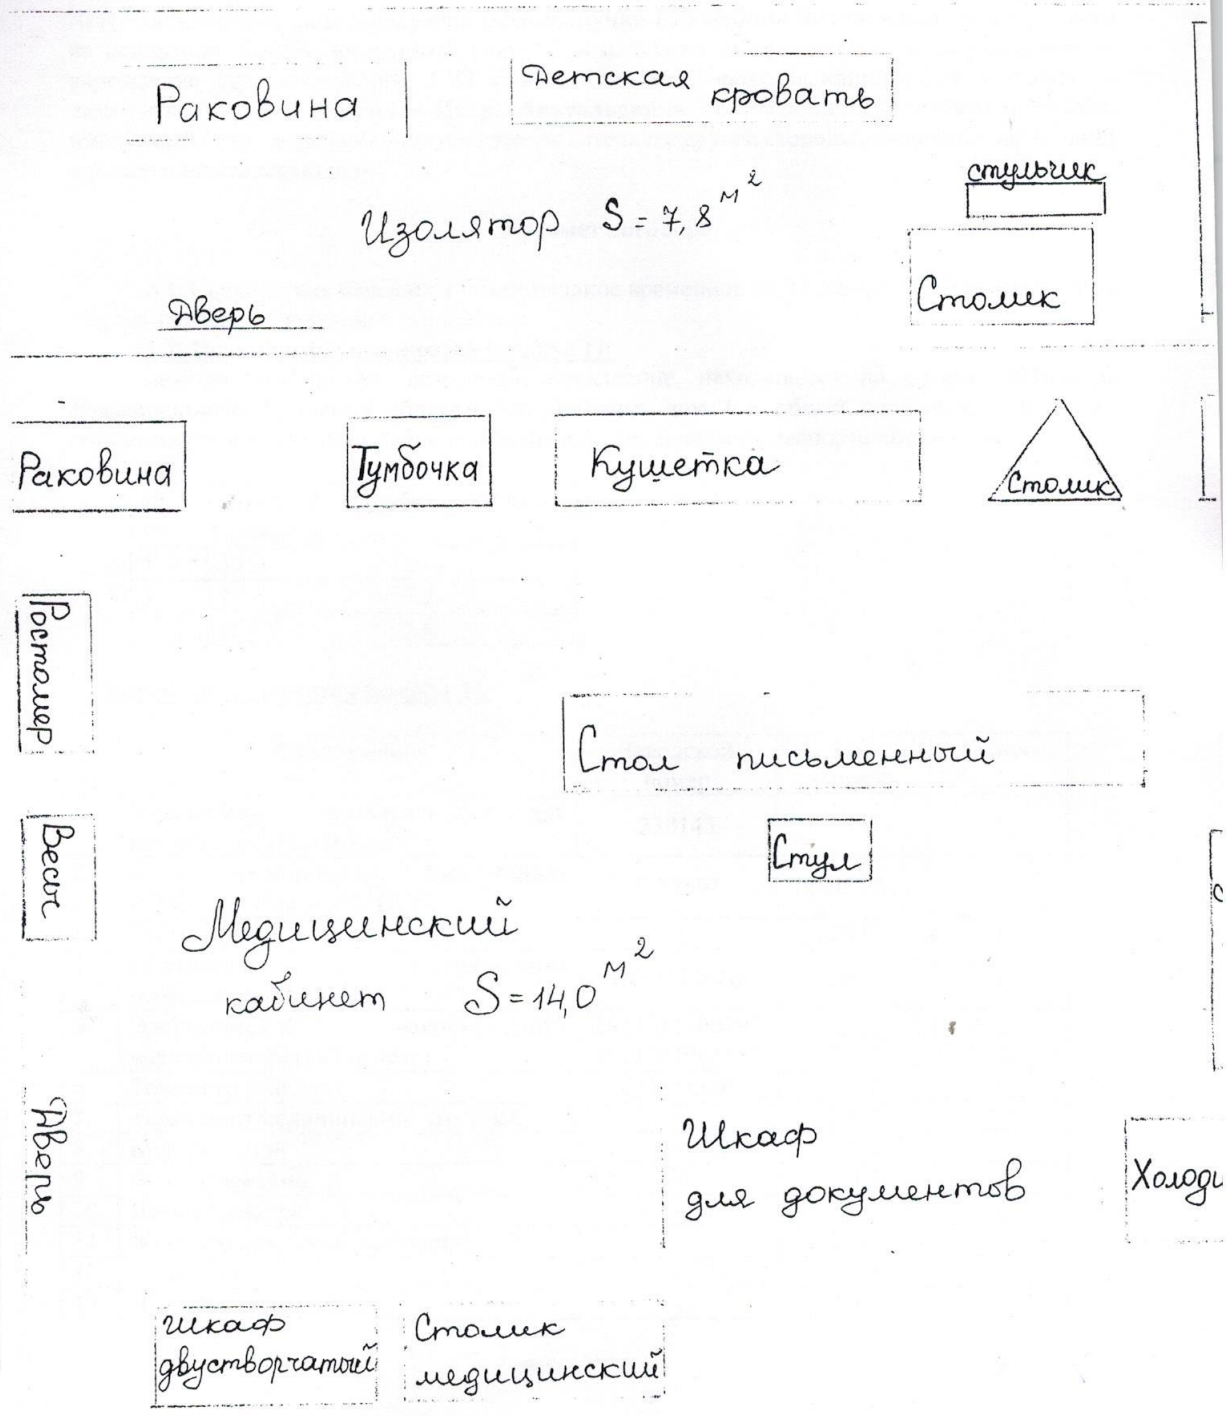 Раковина
Детская
кровать
стульчик
Изолятор S = 7,8 м²
Столик
Дверь
Раковина
Тумбочка
Кушетка
Столик
Ростомер
Стол письменный
Весы
Стул
Медицинский
кабинет S = 14,0 м²
Дверь
Шкаф
для документов
Холоди
Шкаф
двустворчатый
Столик
медицинский